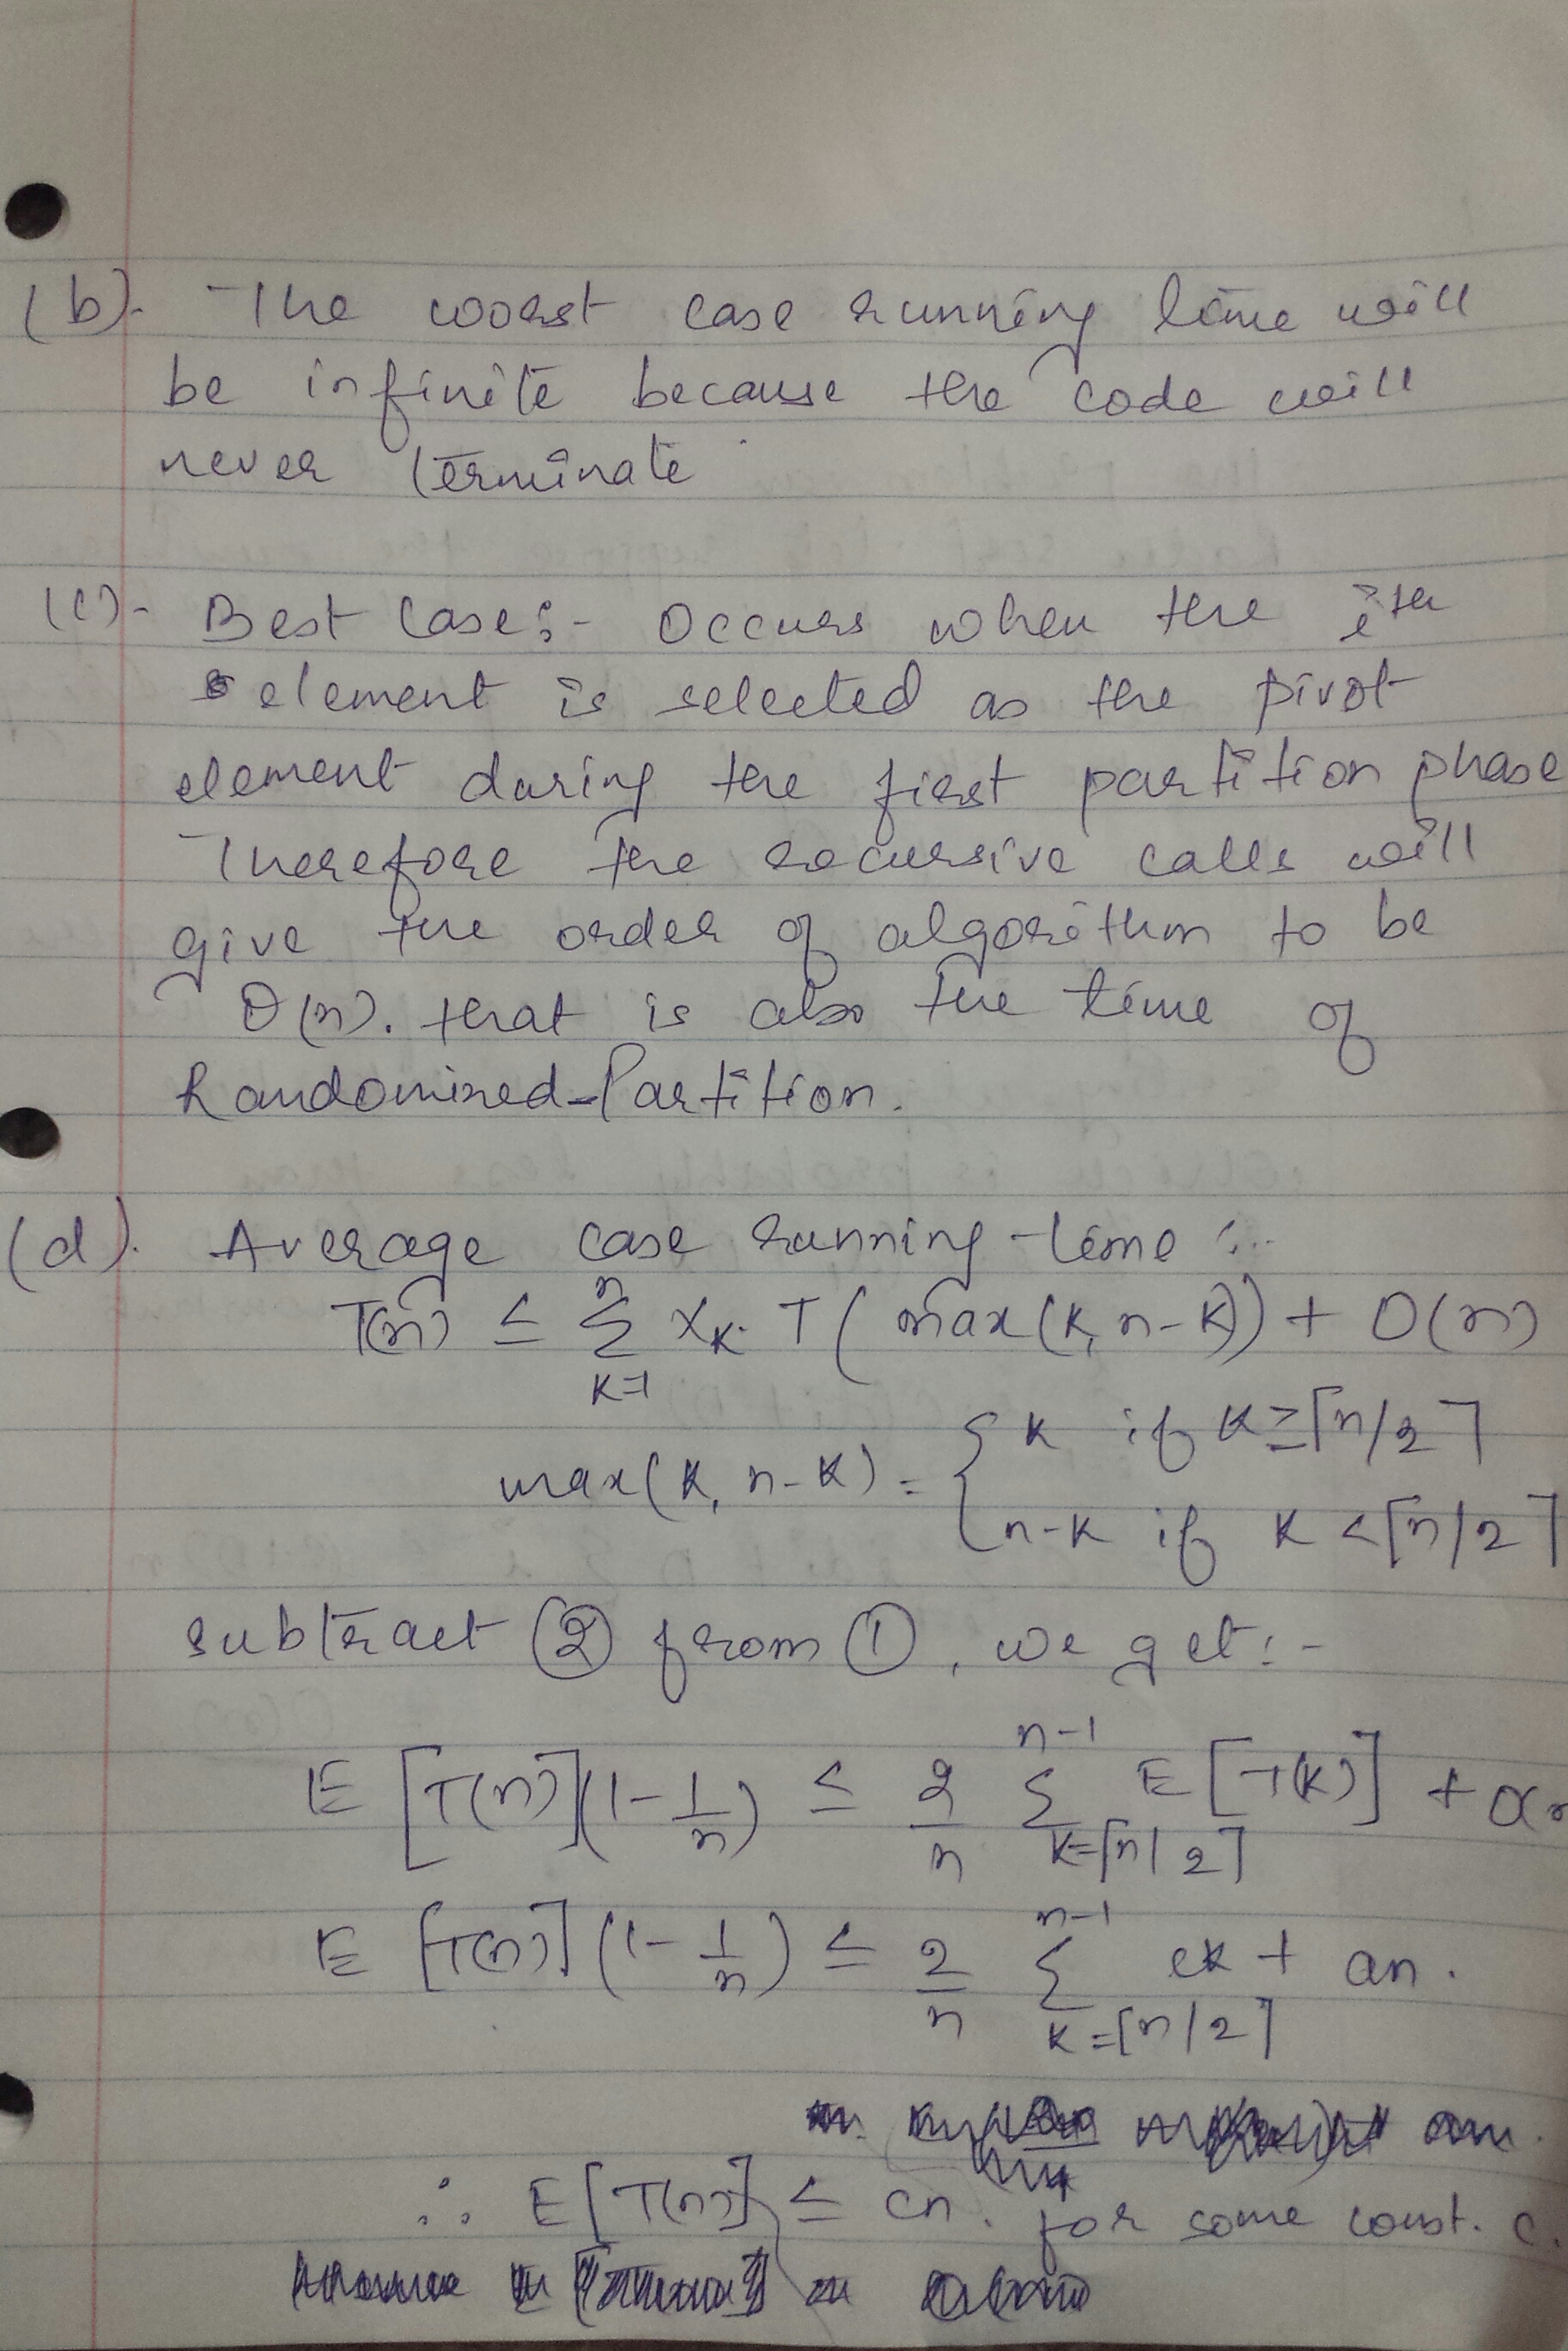 (b). The worst case running time will
be infinite because the code will
never terminate
(c)- Best Case:- Occurs when the ith
element is selected as the pivot
element during the first partition phase
Therefore the recursive calls will
give the order of algorithm to be
O(n). that is also the time of
Randomized-Partition.
(d). Average case running time :-
T(n) ≤ Σ_{k=1}^{n} X_k · T(max(k, n-k)) + O(n)
max(k, n-k) = { k if k ≥ ⌈n/2⌉
n-k if k < ⌈n/2⌉
subtract ② from ①, we get:-
E[T(n)](1 - 1/n) ≤ 2/n Σ_{k=⌈n/2⌉}^{n-1} E[T(k)] +
E[T(n)](1 - 1/n) ≤ 2/n Σ_{k=⌈n/2⌉}^{n-1} ck + an.
∴ E[T(n)] ≤ cn. for some const. c.